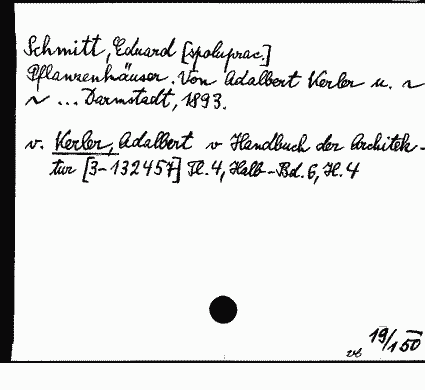 Schmitt, Eduard [spoluprac.]
Pflanzenhäuser. Von Adalbert Kerler u. ~
~ ... Darmstadt, 1893.
v. Kerler, Adalbert v Handbuch der Architek-
tur [3-132457] Tl. 4, Halb-Bd. 6, H. 4
19/150
vb